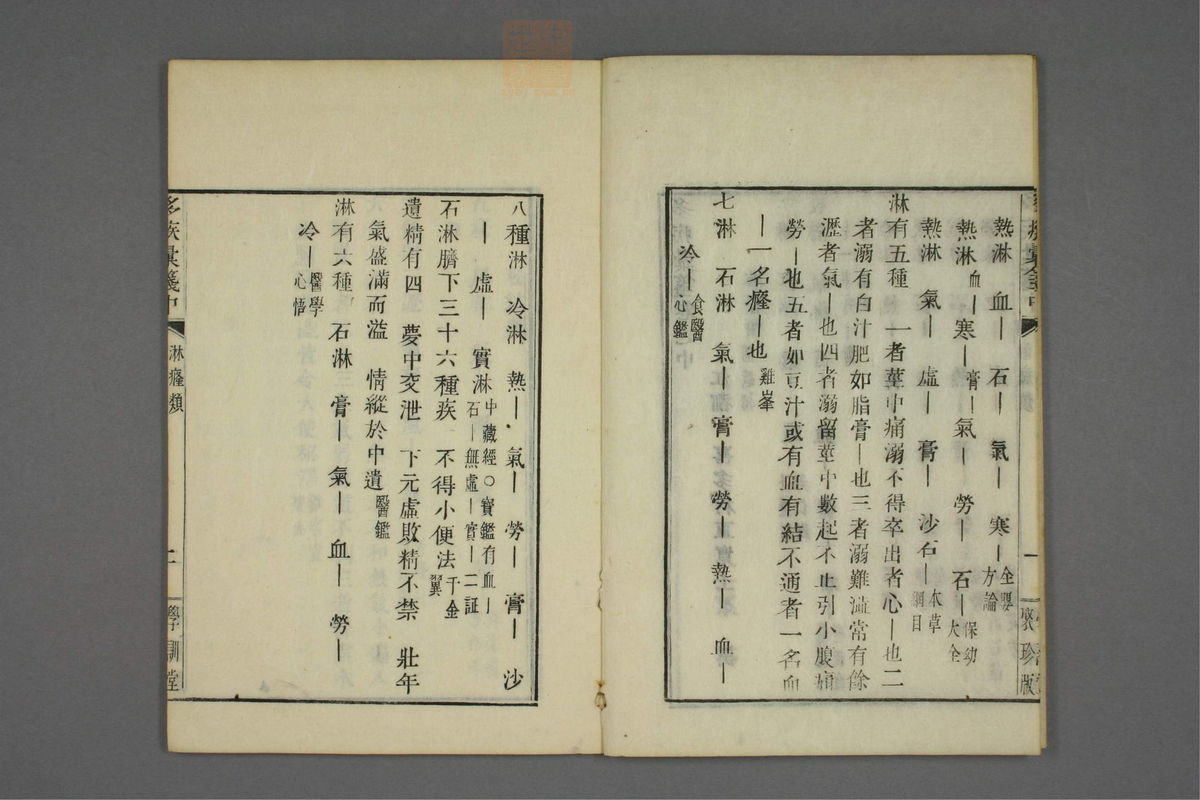 熱淋　血―　石―　氣―　寒―全嬰方論
熱淋血―寒―膏―氣―　勞―　石―保幼大全
熱淋　氣―　虛―　膏―　沙石―本草綱目
淋有五種　一者莖中痛溺不得卒出者心―也二
者溺有白汁肥如脂膏―也三者溺難澁常有餘
瀝者氣―也四者溺留莖中數起不止引小腹痛
勞―也五者如豆汁或有血有結不通者一名血
―一名癃―也雞峯
七淋　石淋　氣―　膏―　勞―　熱―　血―
冷―食醫心鑑
聚珍版
八種淋　冷淋　熱―　氣―　勞―　膏―　沙
―　虛―　實淋中藏經○寶鑑有血―石―無虛―實―二証
石淋臍下三十六種疾　不得小便法千金翼
遺精有四　夢中交泄　下元虛敗精不禁　壯年
氣盛滿而溢　情縱於中遺醫鑑
淋有六種　石淋　膏―　氣―　血―　勞―
冷―醫學心悟
多疾彙箋中　淋癃類　二　學訓堂